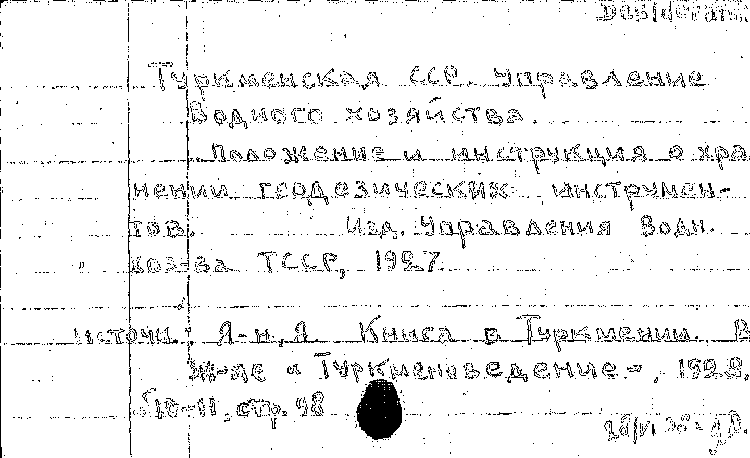 Туркменская ССР. Управление
Водного хозяйства.
Положение и инструкция о хра
нении геодезических инструмен-
тов. Изд. Управления Водн.
хоз-ва ТССР, 1927.
Источн.: Я-н, Я. Книга в Туркмении. В
ж-ле "Туркменоведение", 1928,
10-11, стр. 48